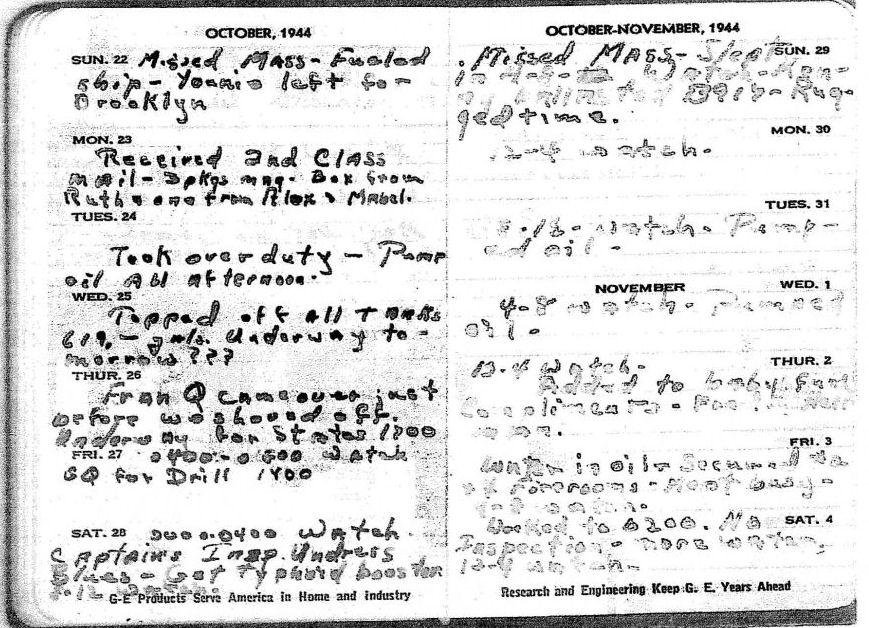 OCTOBER, 1944
SUN. 22 Missed Mass - Fueled
ship - Younie left for
Brooklyn
MON. 23
Received 2nd Class
mail - 3 pkgs mag. Box from
Ruth & one from Alex & Mabel.
TUES. 24
Took over duty - Pump
oil All afternoon.
WED. 25
Topped off all tanks
Underway to-
morrow ???
THUR. 26
Fran Q came over just
before we shoved off.
Underway for States 1200
FRI. 27 0400-0800 Watch
GQ for Drill 1400
SAT. 28 0000-0400 Watch.
Captains Insp. Undress
Blues - Got typhoid booster
8-12 Watch.
G-E Products Serve America in Home and Industry
OCTOBER-NOVEMBER, 1944
SUN. 29
Missed Mass - Slept
in 4-8 Watch -
Rug-
ged time.
MON. 30
12-4 watch.
TUES. 31
8-12 - watch. Pump-
ed oil -
NOVEMBER WED. 1
4-8 watch. Pumped
oil.
THUR. 2
12-4 watch.
Added to baby fund
Compliments -
FRI. 3
Water in oil - Secured
firerooms - Most busy -
4-8 watch.
SAT. 4
Worked to 0200. No
Inspection - more water.
12-4 watch.
Research and Engineering Keep G. E. Years Ahead